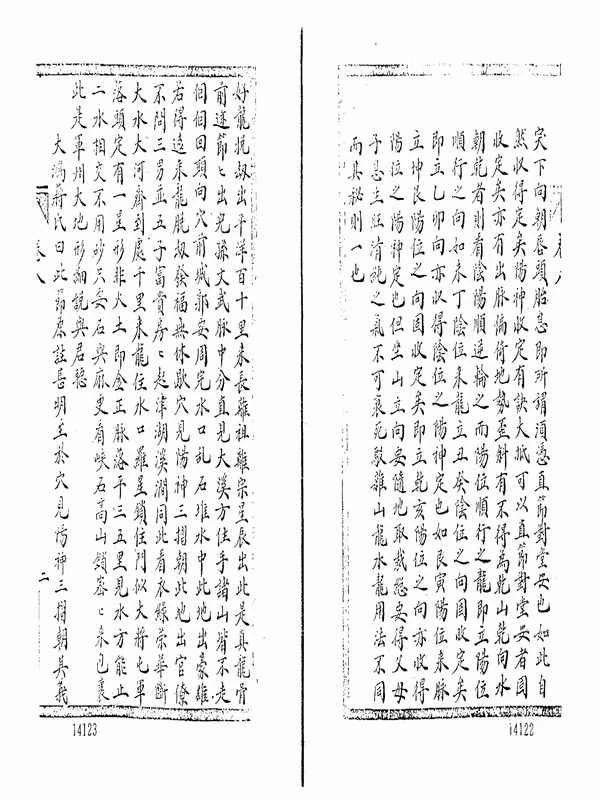 穴下向朝唇頭胎息即所謂須憑直節對堂安也如此自
然收得定矣陽神收定有訣大抵可以直節對堂安者固
收定矣亦有出脉偏倚地勢歪斜有不得為乾山乾向水
朝乾者則看陰陽順逆輪之而陽位順行之龍即立陽位
順行之向如未丁陰位来龍立丑癸陰位之向固收定矣
即立乙卯向亦收得陰位之陽神定也如艮寅陽位来脉
立坤艮陽位之向固收定矣即立乾亥陽位之向亦收得
陽位之陽神定也但坐山立向要隨地取裁總要得父母
子息生旺清純之氣不可衰死駁雜山龍水龍用法不同
而其秘則一也
卷八
14122
好龍挩刼出平洋百十里来長離祖離宗星辰出此是真龍骨
前途節々出兒孫文武脉中分直見大溪方住手諸山皆不走
個個回頭向穴前城郭要周完水口乱石堆水中此地出豪雄
右得遠来龍脱刼發福無休歇穴見陽神三摺朝此地出官僚
不問三男並五子富貴房々起津湖溪澗同此看衣綠榮華斷
大水大河齊到處千里来龍住水口羅星鎖住門似大將屯軍
落頭定有一星形非火土即金正脉落平三五里見水方能止
二水相交不用砂只要石與麻更看峽石高山鎖密々来包裹
此是軍州大地形細說與君聽
大鴻蔣氏曰此節原註甚明至於穴見陽神三摺朝其義
卷八
二
14123